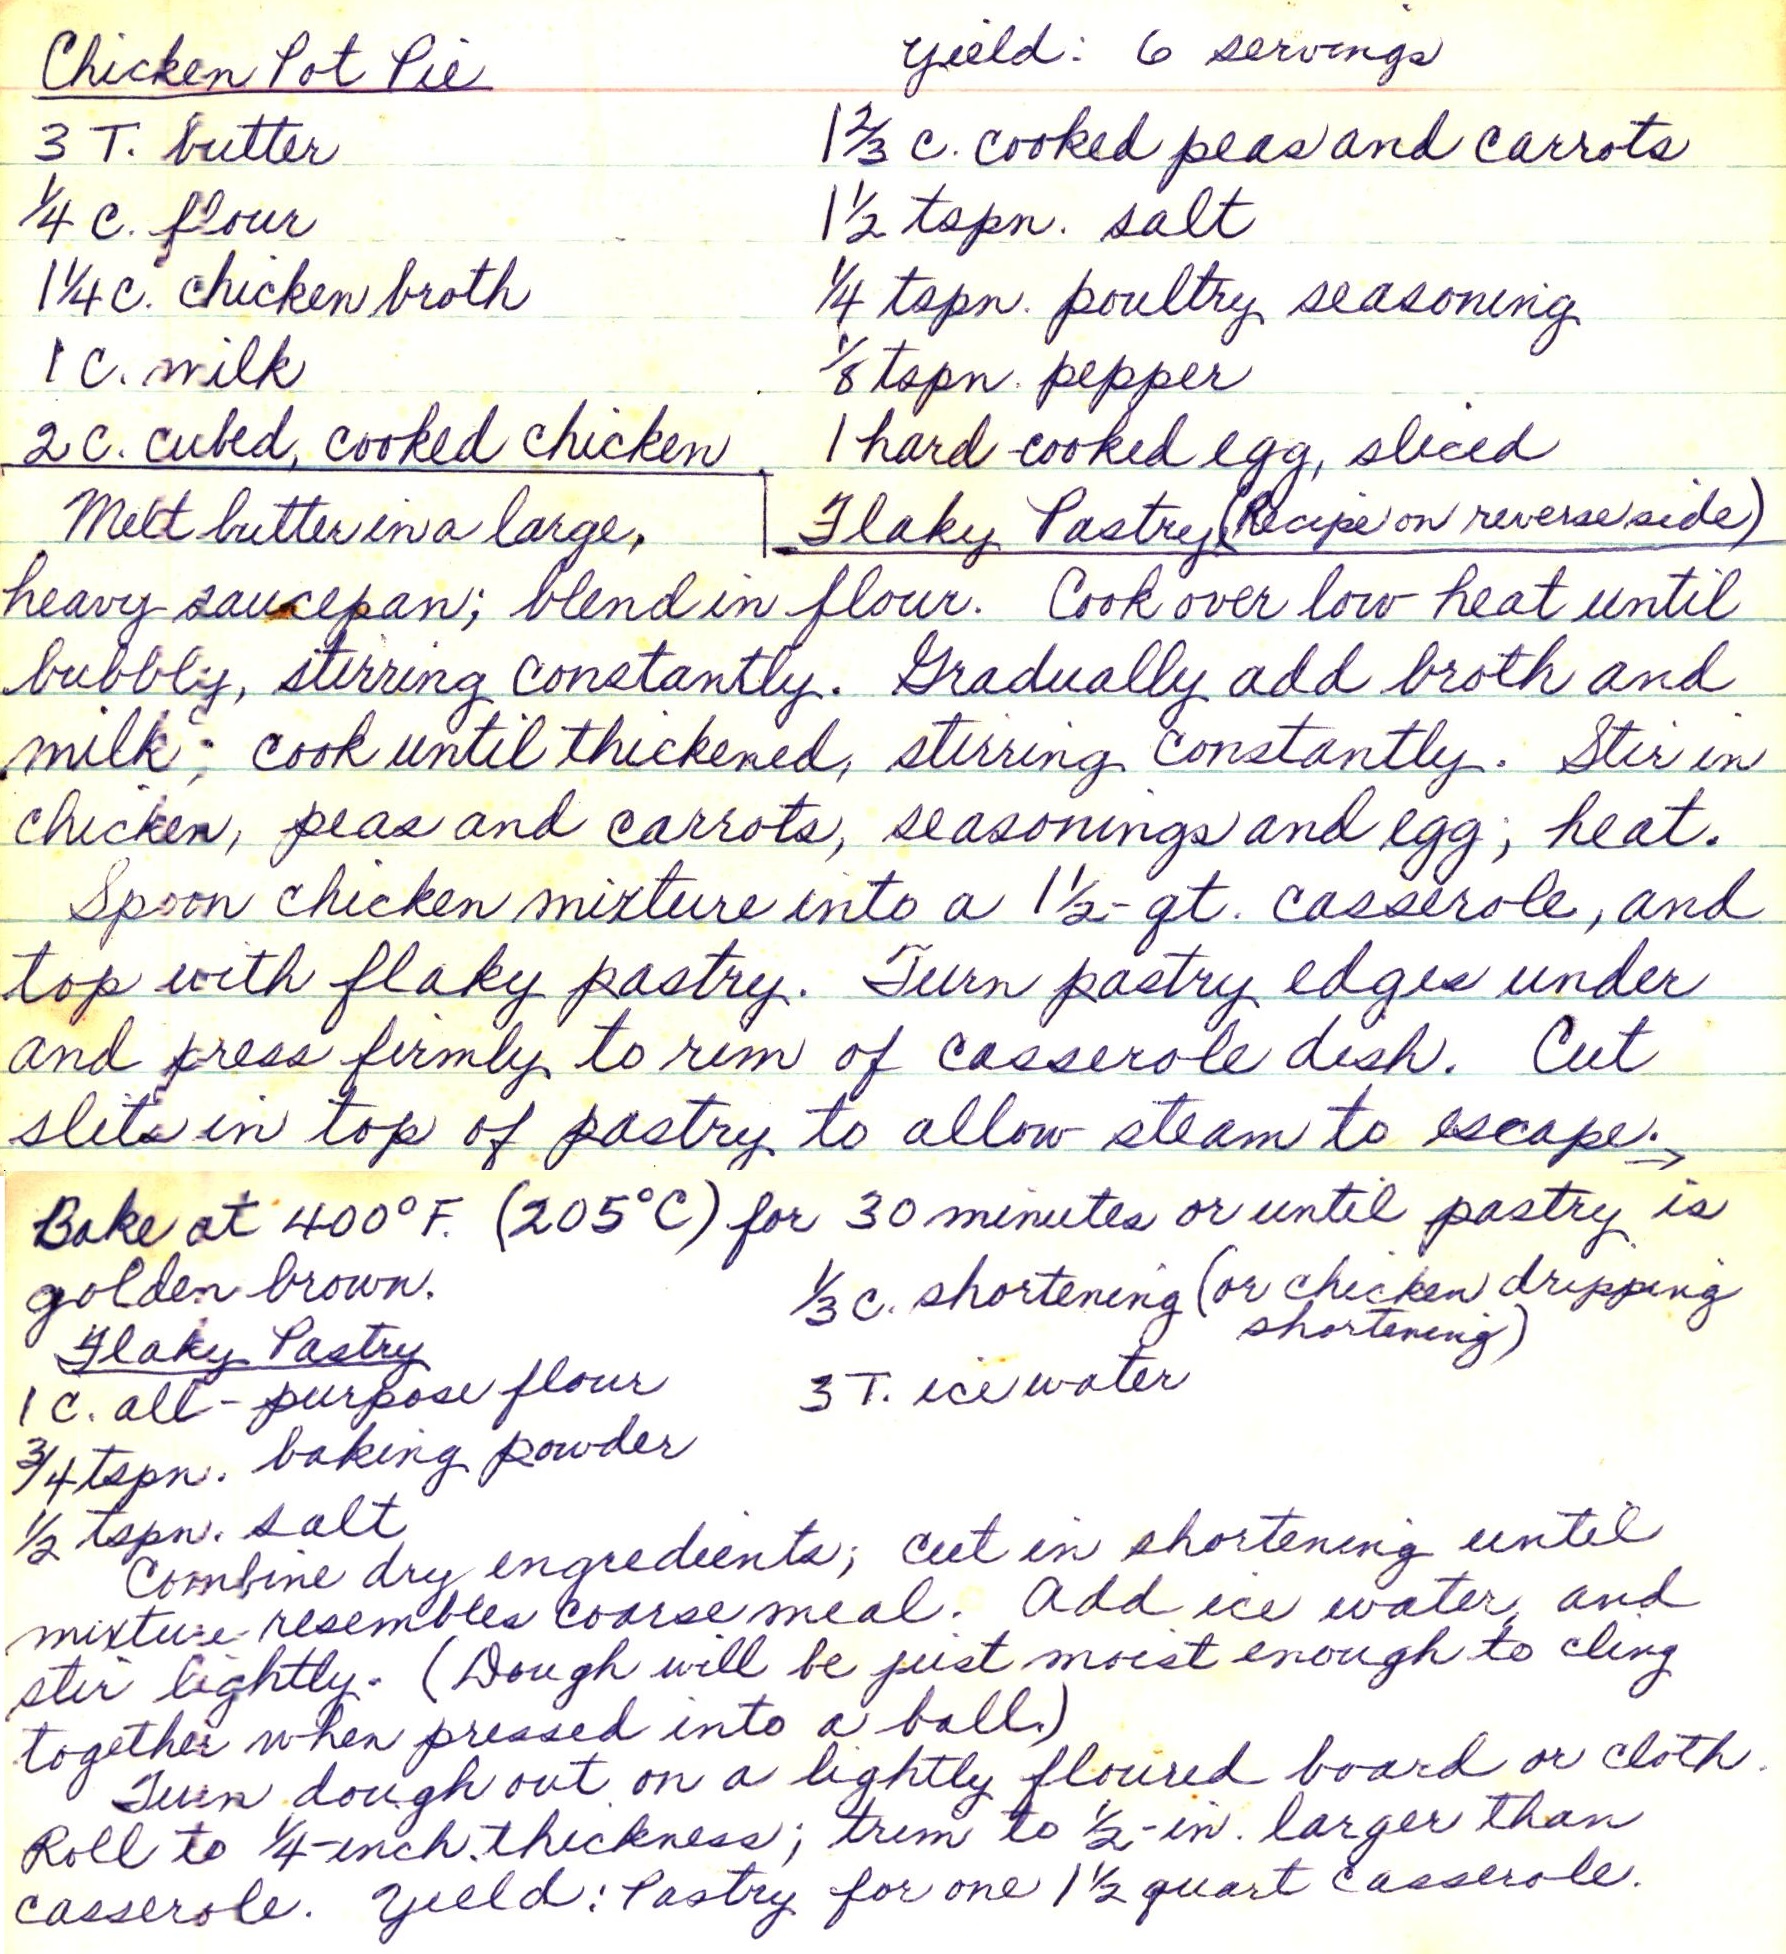 Chicken Pot Pie
Yield: 6 servings
3 T. butter
1/4 c. flour
1 1/4 c. chicken broth
1 c. milk
2 c. cubed, cooked chicken
1 2/3 c. cooked peas and carrots
1 1/2 tspn. salt
1/4 tspn. poultry seasoning
1/8 tspn. pepper
1 hard-cooked egg, sliced
Flaky Pastry (Recipe on reverse side)
Melt butter in a large,
heavy saucepan; blend in flour. Cook over low heat until
bubbly, stirring constantly. Gradually add broth and
milk; cook until thickened, stirring constantly. Stir in
chicken, peas and carrots, seasonings and egg; heat.
Spoon chicken mixture into a 1 1/2-qt. casserole, and
top with flaky pastry. Turn pastry edges under
and press firmly to rim of casserole dish. Cut
slits in top of pastry to allow steam to escape. →
Bake at 400°F. (205°C) for 30 minutes or until pastry is
golden brown.
Flaky Pastry
1 c. all-purpose flour
3/4 tspn. baking powder
1/2 tspn. salt
1/3 c. shortening (or chicken dripping
shortening)
3 T. ice water
Combine dry ingredients; cut in shortening until
mixture resembles coarse meal. Add ice water, and
stir lightly. (Dough will be just moist enough to cling
together when pressed into a ball.)
Turn dough out on a lightly floured board or cloth.
Roll to 1/4-inch thickness; trim to 1/2-in. larger than
casserole. Yield: Pastry for one 1 1/2 quart casserole.